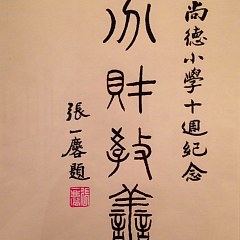 尚德小學十週紀念
分財教譱
張一麐題